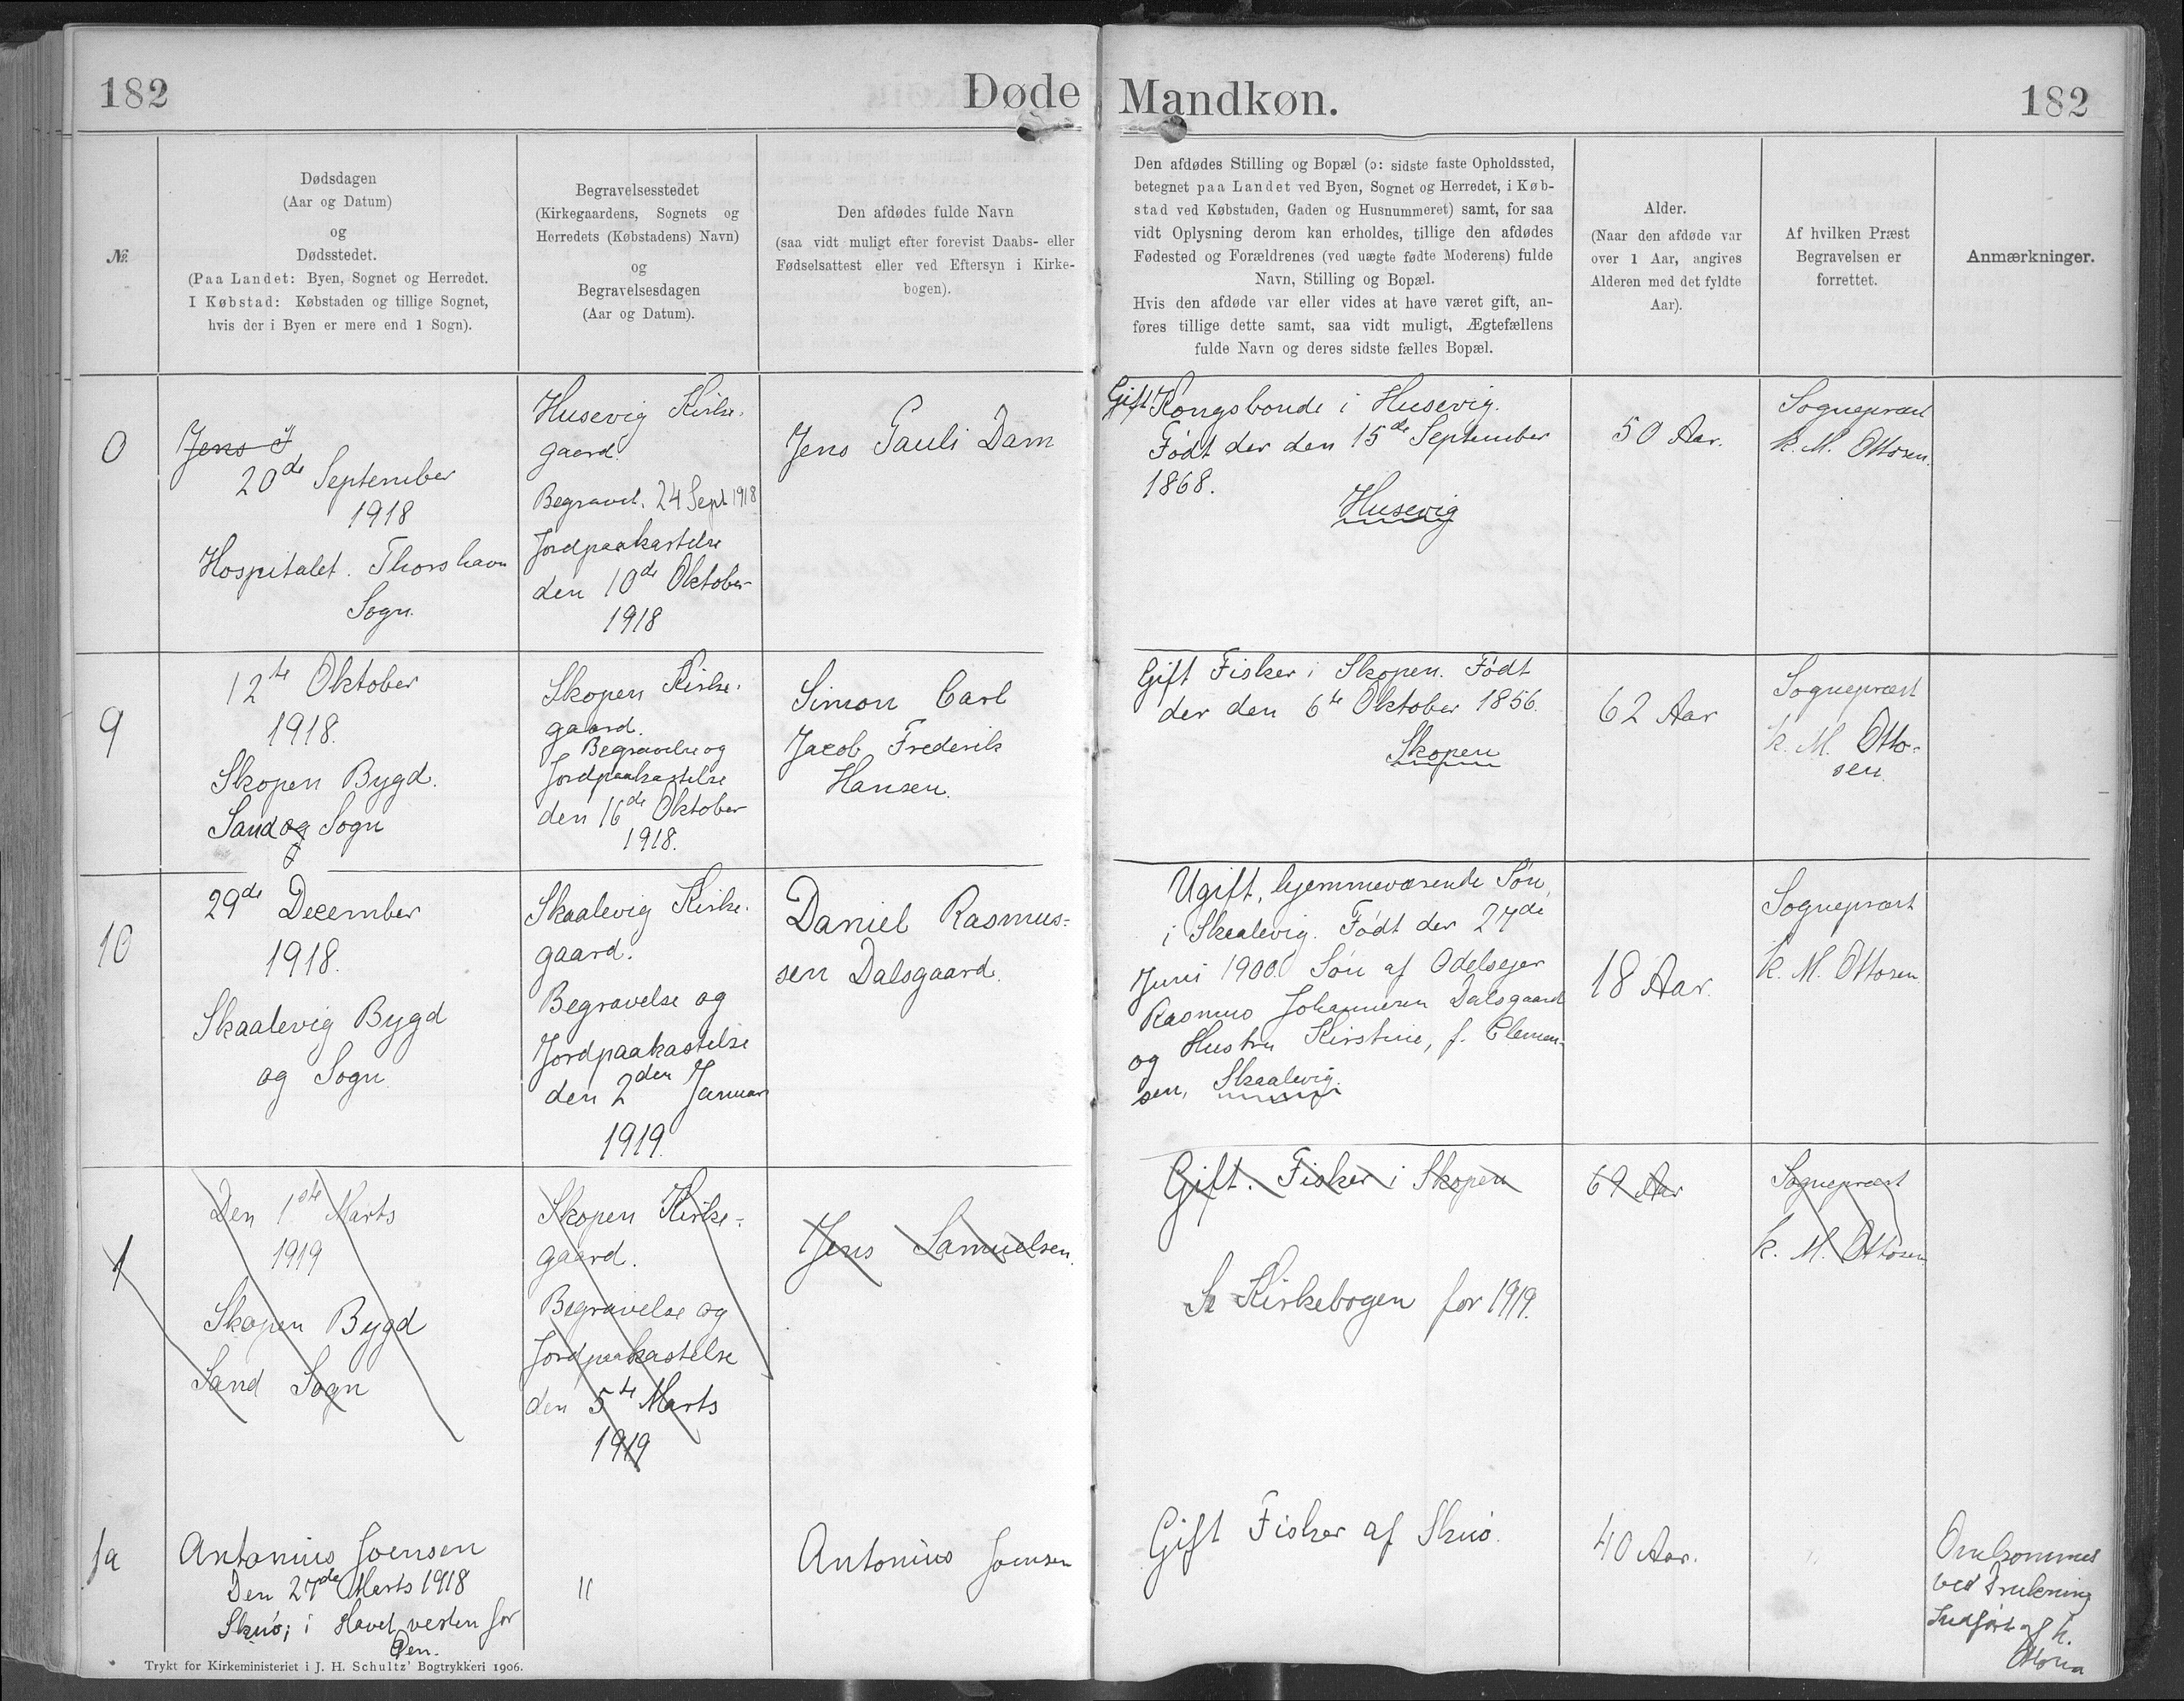 182
Døde
Mandkøn.
182
№
Dødsdagen
(Aar og Datum)
og
Dødsstedet.
(Paa Landet: Byen, Sognet og Herredet.
I Købstad: Købstaden og tillige Sognet,
hvis der i Byen er mere end 1 Sogn).
Begravelsesstedet
(Kirkegaardens, Sognets og
Herredets (Købstadens) Navn)
og
Begravelsesdagen
(Aar og Datum).
Den afdødes fulde Navn
(saa vidt muligt efter forevist Daabs- eller
Fødselsattest eller ved Eftersyn i Kirke-
bogen).
Den afdødes Stilling og Bopæl (ɔ: sidste faste Opholdssted,
betegnet paa Landet ved Byen, Sognet og Herredet, i Køb-
stad ved Købstaden, Gaden og Husnummeret) samt, for saa
vidt Oplysning derom kan erholdes, tillige den afdødes
Fødested og Forældrenes (ved uægte fødte Moderens) fulde
Navn, Stilling og Bopæl.
Hvis den afdøde var eller vides at have været gift, an-
føres tillige dette samt, saa vidt muligt, Ægtefællens
fulde Navn og deres sidste fælles Bopæl.
Alder.
(Naar den afdøde var
over 1 Aar, angives
Alderen med det fyldte
Aar).
Af hvilken Præst
Begravelsen er
forrettet.
Anmærkninger.
0
Jens J
20de September
1918
Hospitalet. Thorshavn
Sogn.
Husevig Kirke-
gaard.
Begravet. 24 Sept 1918
Jordpaakastelse
den 10de Oktober
1918
Jens Pauli Dam
Gift Kongsbonde i Husevig.
Født der den 15de September
1868.
Husevig
50 Aar.
Sognepræst
K. M. Ottosen.
9
12te Oktober
1918.
Skopen Bygd.
Sand og Sogn
Skopen Kirke-
gaard.
Begravelse og
Jordpaakastelse
den 16de Oktober
1918.
Simon Carl
Jacob Frederik
Hansen.
Gift Fisker i Skopen. Født
der den 6te Oktober 1856.
Skopen
62 Aar
Sognepræst
K. M. Otto-
sen
10
29de December
1918.
Skaalevig Bygd
og Sogn.
Skaalevig Kirke-
gaard.
Begravelse og
Jordpaakastelse
den 2den Januar
1919.
Daniel Rasmus-
sen Dalsgaard.
Ugift, hjemmeværende Søn,
i Skaalevig. Født der 27de
Juni 1900. Søn af Odelsejer
Rasmus Johannesen Dalsgaard
og Hustru Kirstine, f. Clemen-
sen, Skaalevig.
18 Aar.
Sognepræst
K. M. Ottosen
1
Den 1ste Marts
1919
Skopen Bygd
Sand Sogn
Skopen Kirke-
gaard.
Begravelse og
Jordpaakastelse
den 5te Marts
1919
Jens Samuelsen.
Gift. Fisker i Skopen
Se Kirkebogen for 1919.
69 Aar
Sognepræst
K. M. Ottosen
1a
Antonius Joensen
Den 27de Marts 1918
Skuø; i Havet vesten for
Øen.
"
Antonius Joensen
Gift Fisker af Skuø.
40 Aar.
Omkommet
ved Drukning
Indført af K.
Ottosen
Trykt for Kirkeministeriet i J. H. Schultz' Bogtrykkeri 1906.